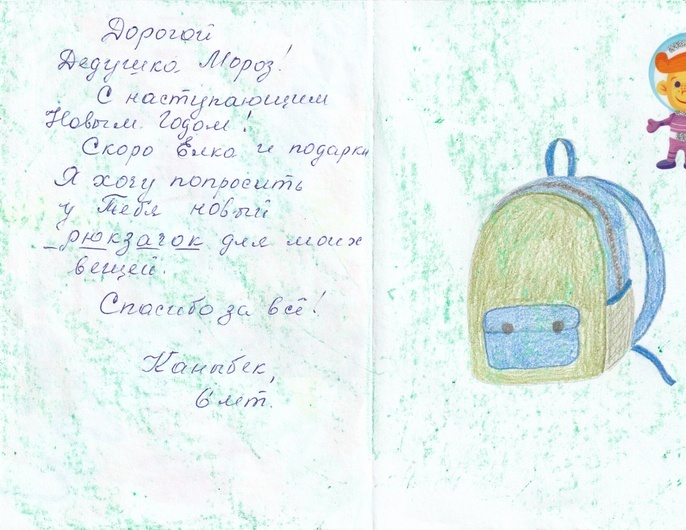 Дорогой
Дедушка Мороз!
С наступающим
Новым Годом!
Скоро Ёлка и подарки
Я хочу попросить
у Тебя новый
рюкзачок для моих
вещей.
Спасибо за всё!
Каныбек,
6 лет.